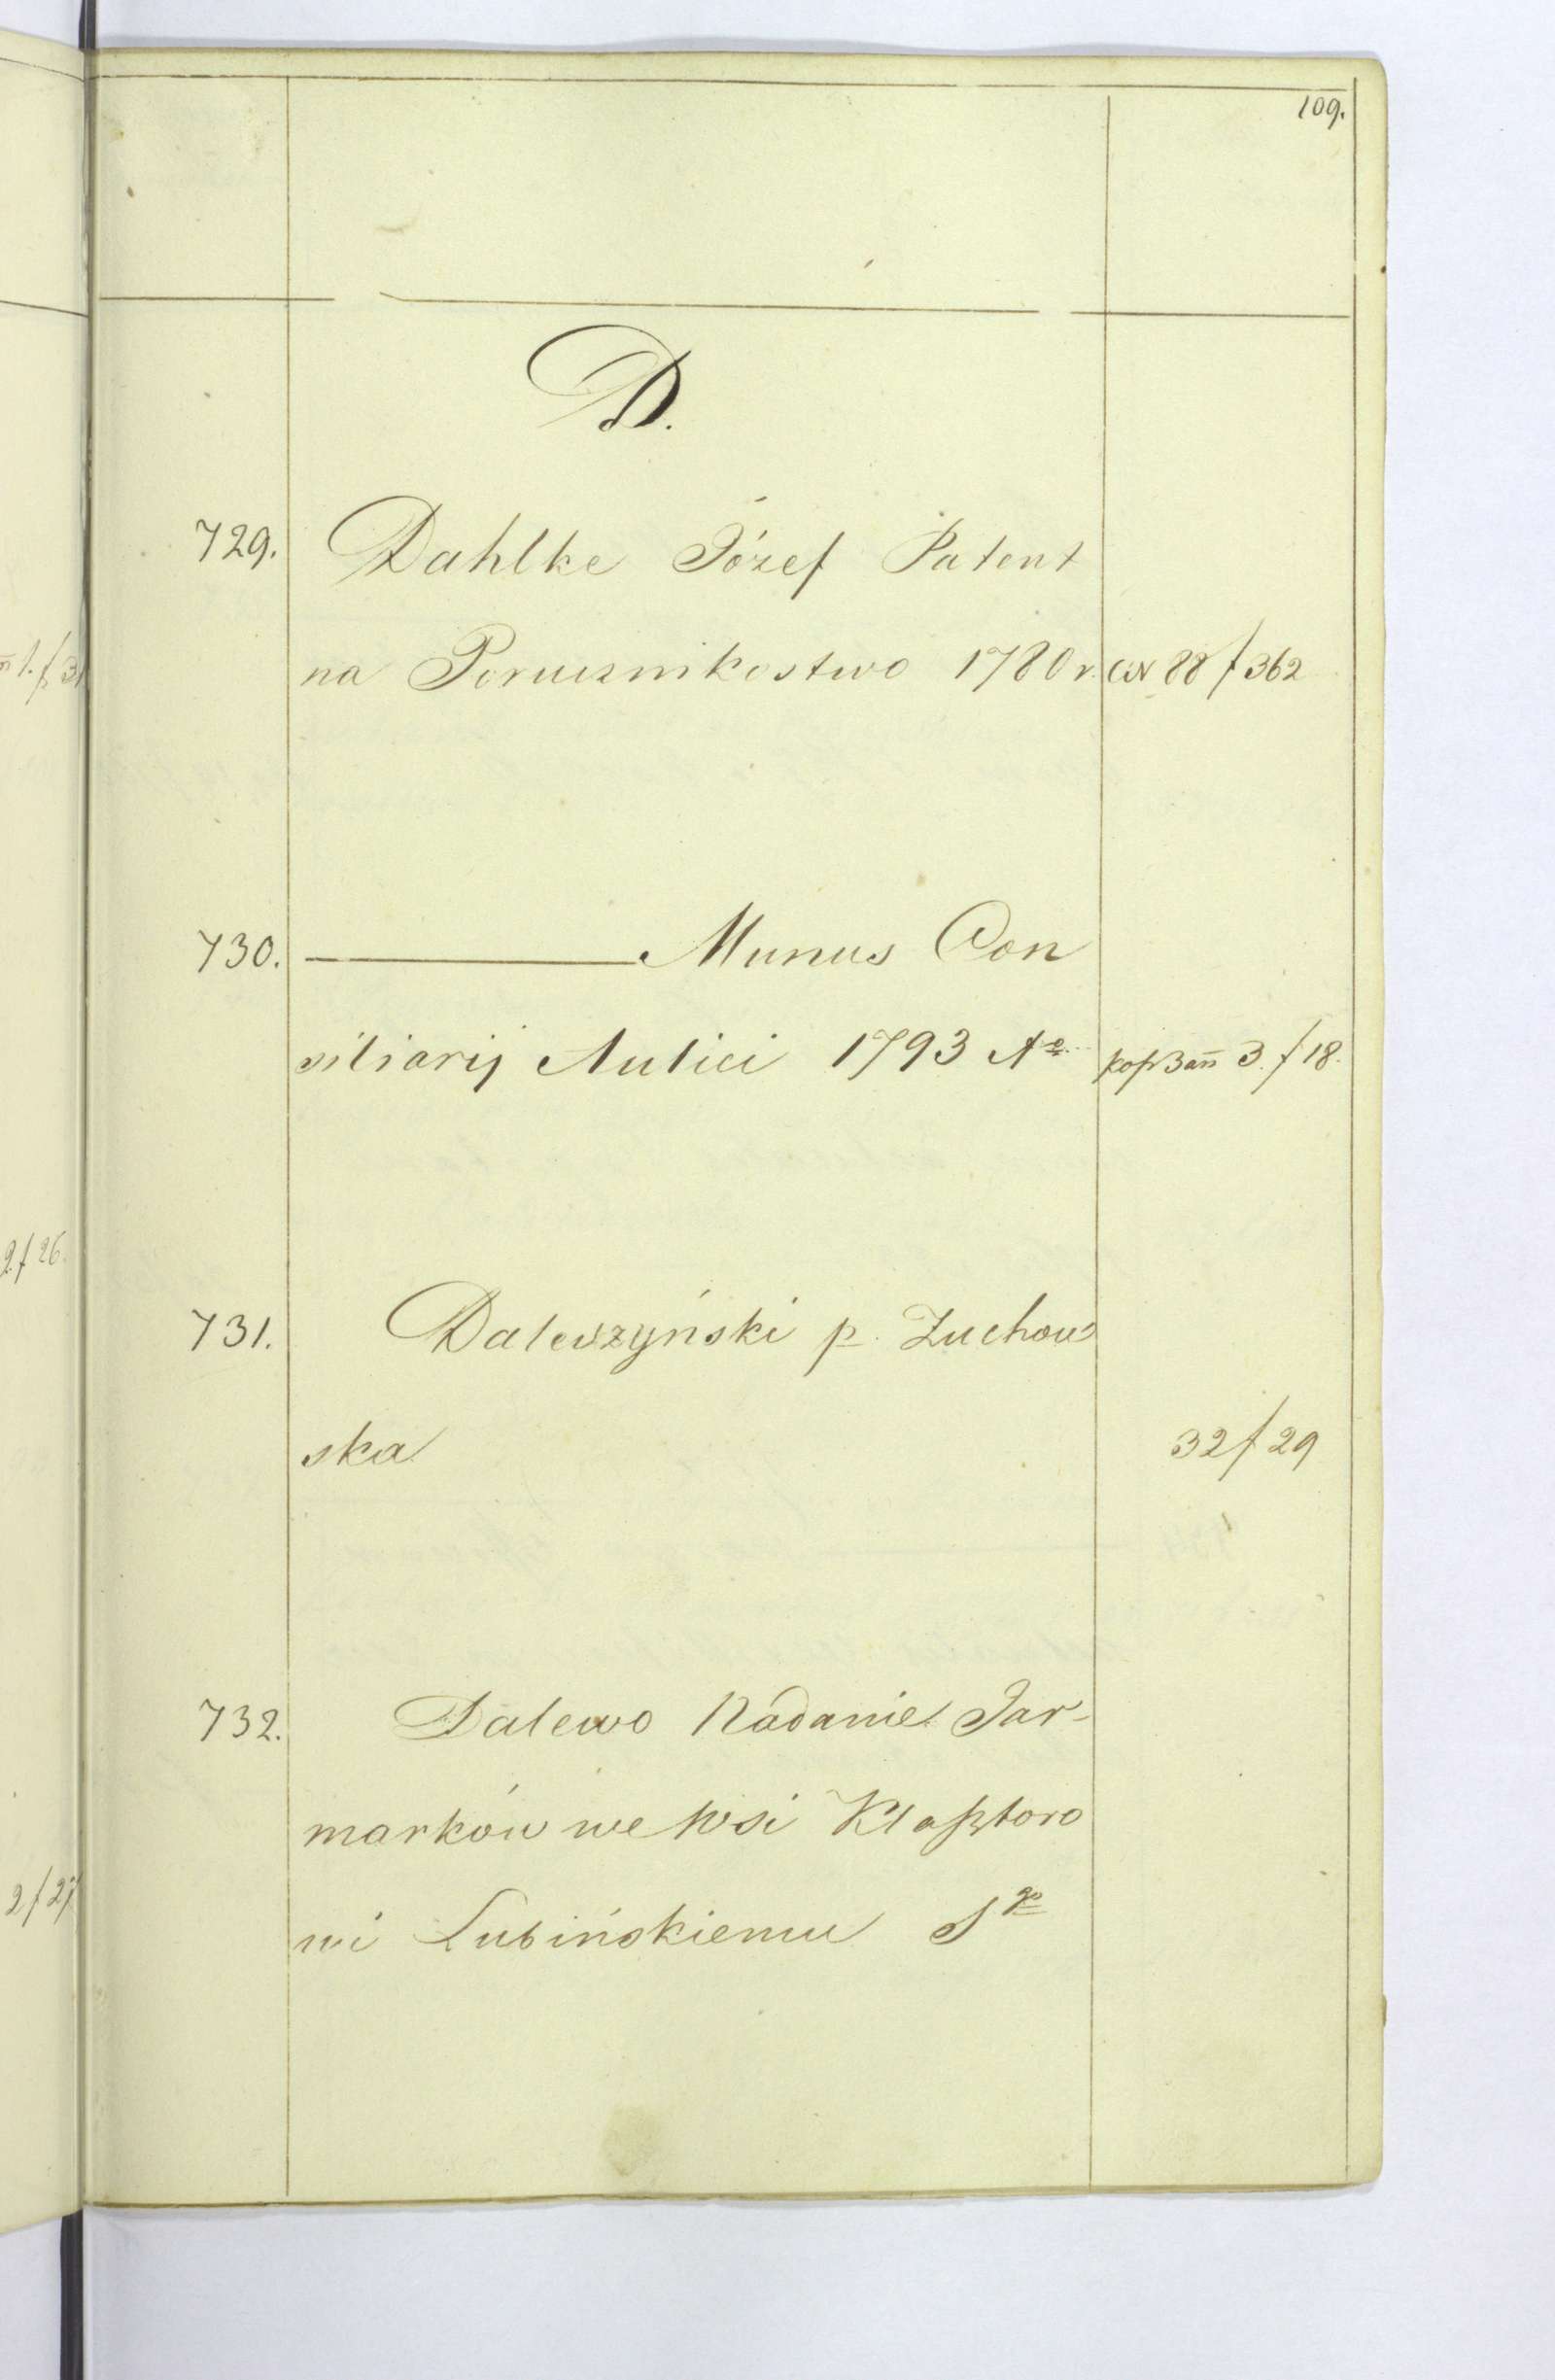 109.
D.
729. Dahlke Józef Patent
na Porucznikostwo 1780 r. CN 88 f 362
730. ——— Munus Con
siliarij Aulici 1793 Ao
3. f 18.
731. Daleszyński p. Zuchow
ska 32 f 29
732. Dalewo Nadanie Jar-
marków we Wsi Klasztoro
wi Lubińskiemu